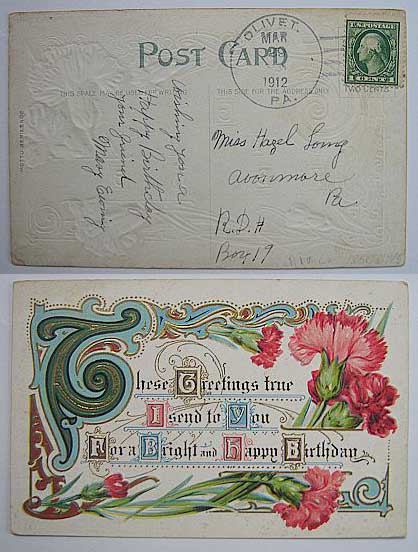 OLIVET.
MAR
1912
PA.
U.S. POSTAGE
POST CARD
THIS SPACE MAY BE USED FOR WRITING
THIS SIDE FOR THE ADDRESS ONLY
Wishing you a
Happy Birthday
your friend
Mary Ewing
Miss Hazel Long
Avonmore
Pa
R.D.H
Box 19
These Greetings true
I send to You
For a Bright and Happy Birthday